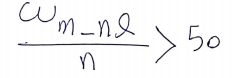 ω_{m-nl} / n > 50